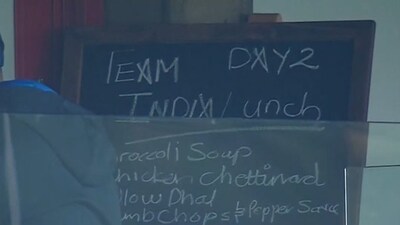 TEAM DAY2
INDIA Lunch
Broccoli Soup
Chicken Chettinad
Yellow Dhal
Lamb Chops & Pepper Sauce